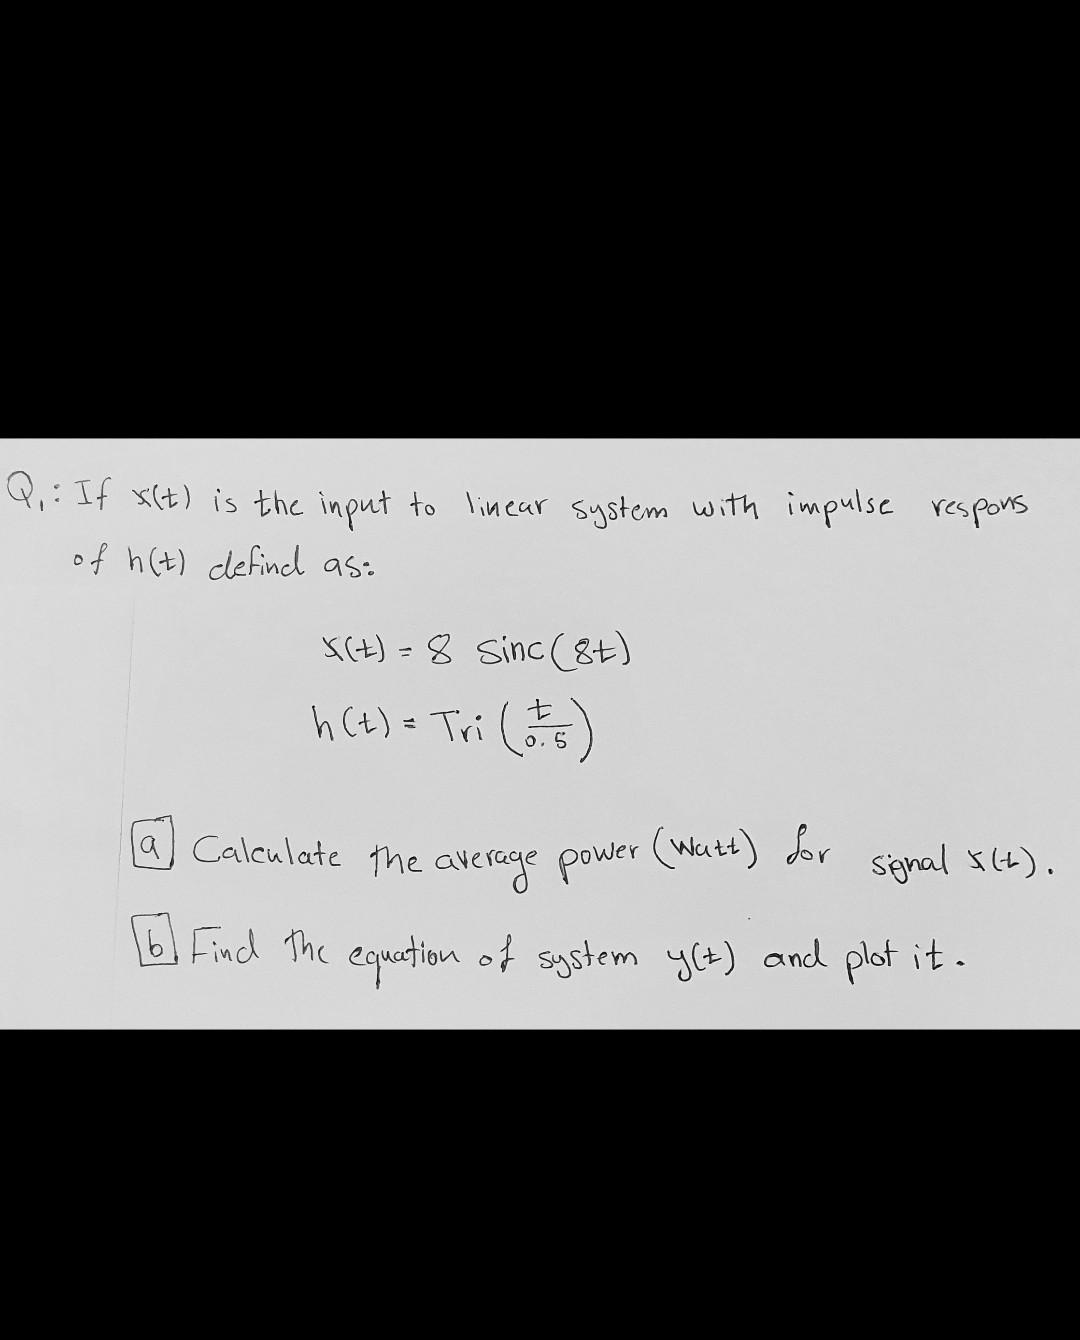 Q1: If x(t) is the input to linear system with impulse respons
of h(t) defind as:
x(t) = 8 sinc(8t)
h(t) = Tri(t/0.5)
a Calculate the average power (watt) for signal x(t).
b Find the equation of system y(t) and plot it.